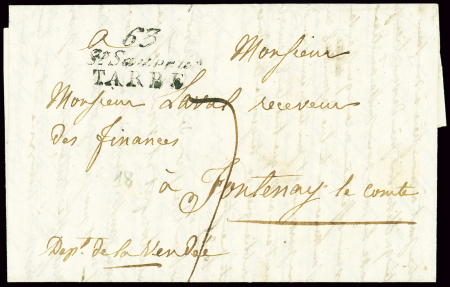 A 63
St Sauveur
TARBES
Monsieur
Monsieur Laval receveur
des finances
à Fontenay le comte
Dept. de la Vendée
7